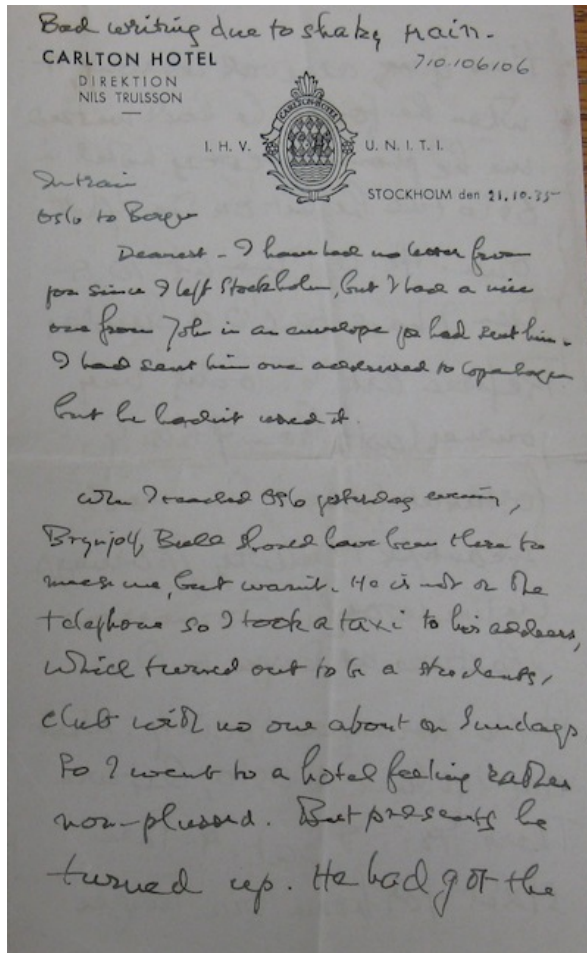 Bad writing due to shaky train.
CARLTON HOTEL
710.106106
DIREKTION
NILS TRULSSON
CARLTON HOTEL
I. H. V.
U. N. I. T. I.
STOCKHOLM den 21.10.35
In train
Oslo to Bergen
Dearest - I have had no letter from
you since I left Stockholm, but I had a nice
one from John in an envelope you had sent him.
I had sent him one addressed to Copenhagen
but he hadn't used it.
When I reached Oslo yesterday evening,
Brynjolf Bull should have been there to
meet me, but wasn't. He is not on the
telephone so I took a taxi to his address,
which turned out to be a students'
club with no one about on Sundays
So I went to a hotel feeling rather
non-plussed. But presently he
turned up. He had got the